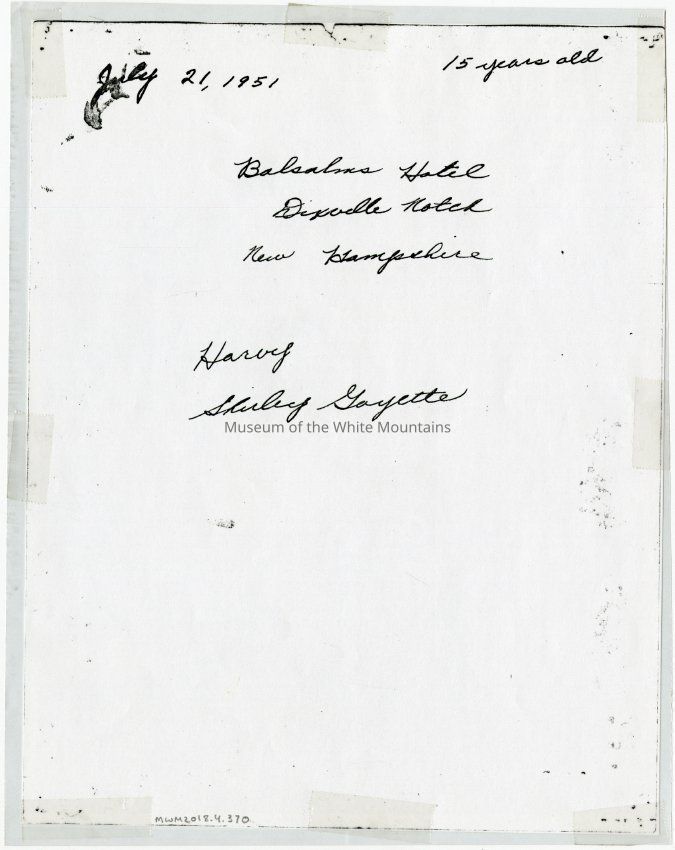 July 21, 1951
15 years old
Balsalms Hotel
Dixville Notch
New Hampshire
Harvey
Shirley Goyette
Museum of the White Mountains
MWM2018.4.370